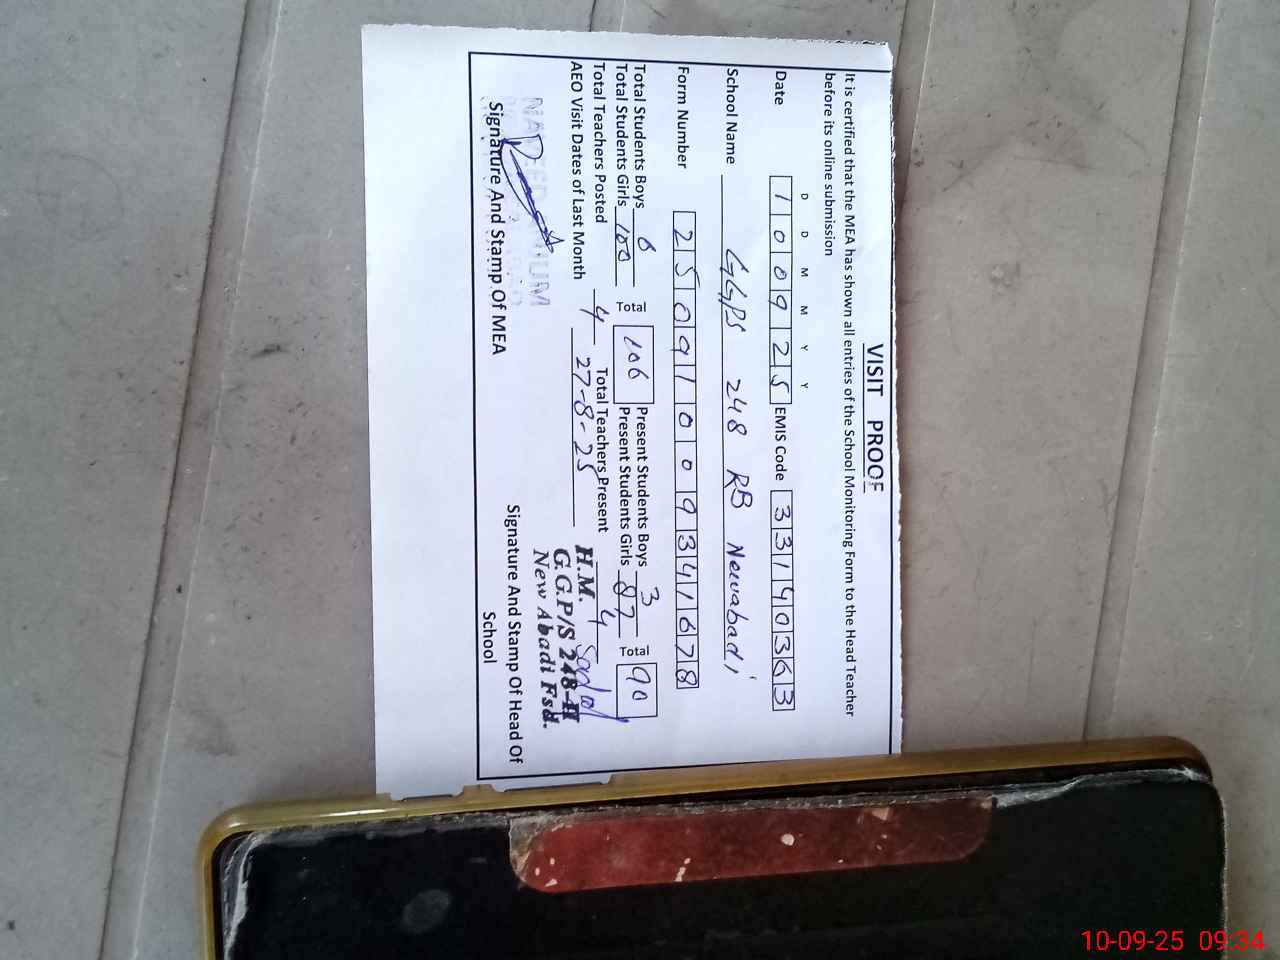 VISIT PROOF
It is certified that the MEA has shown all entries of the School Monitoring Form to the Head Teacher
before its online submission
D D M M Y Y
Date 1 0 0 9 2 5 EMIS Code 3 3 1 4 0 3 6 3
School Name GGPS 248 RB Newabadi
Form Number 2 5 0 9 1 0 0 9 3 4 1 6 7 8
Total Students Boys 6 Present Students Boys 3
Total Students Girls 100 Total 106 Present Students Girls 87 Total 90
Total Teachers Posted 4 Total Teachers Present 4
AEO Visit Dates of Last Month 27-8-25
H.M.
G.G.P/S 248-
New Abadi Fsd.
Signature And Stamp Of MEA
Signature And Stamp Of Head Of
School
10-09-25 09:34